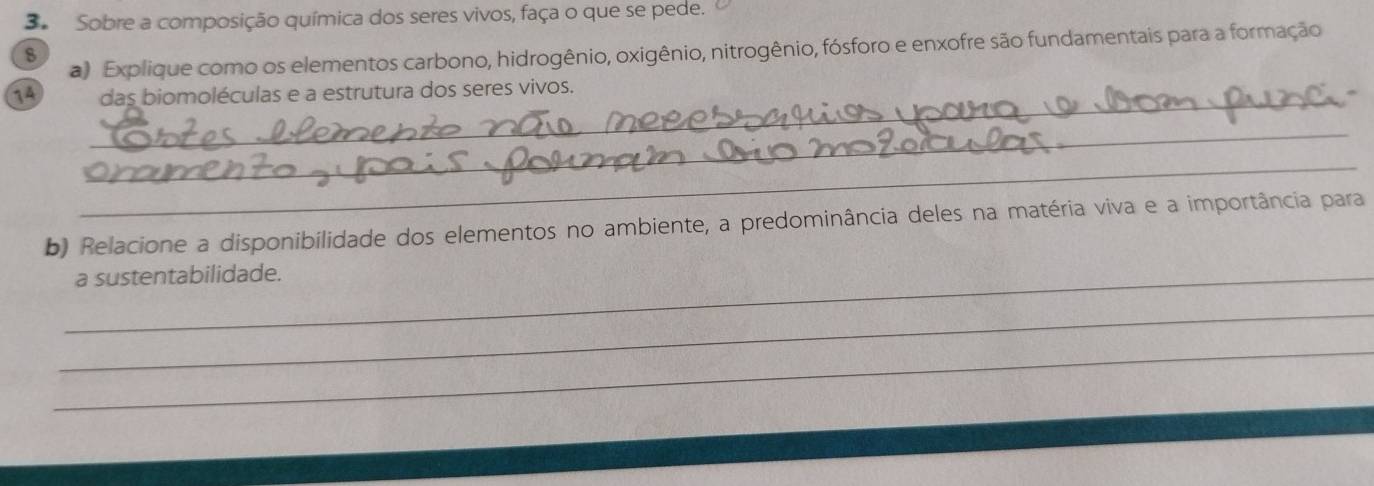 3. Sobre a composição química dos seres vivos, faça o que se pede.
8
a) Explique como os elementos carbono, hidrogênio, oxigênio, nitrogênio, fósforo e enxofre são fundamentais para a formação
14 das biomoléculas e a estrutura dos seres vivos.
elemento não para o bom funci-
onamento, pois formam
b) Relacione a disponibilidade dos elementos no ambiente, a predominância deles na matéria viva e a importância para
a sustentabilidade.